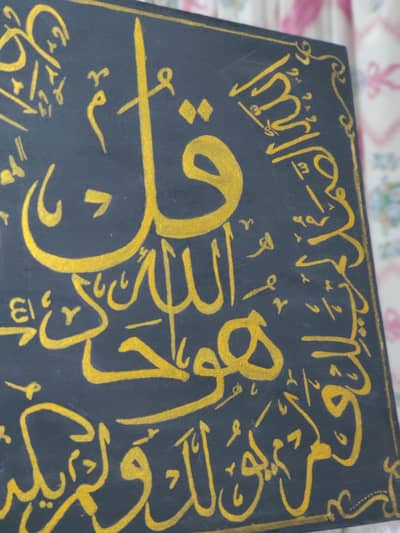 قل
هو الله احد
الله الصمد لم يلد
ولم يولد ولم